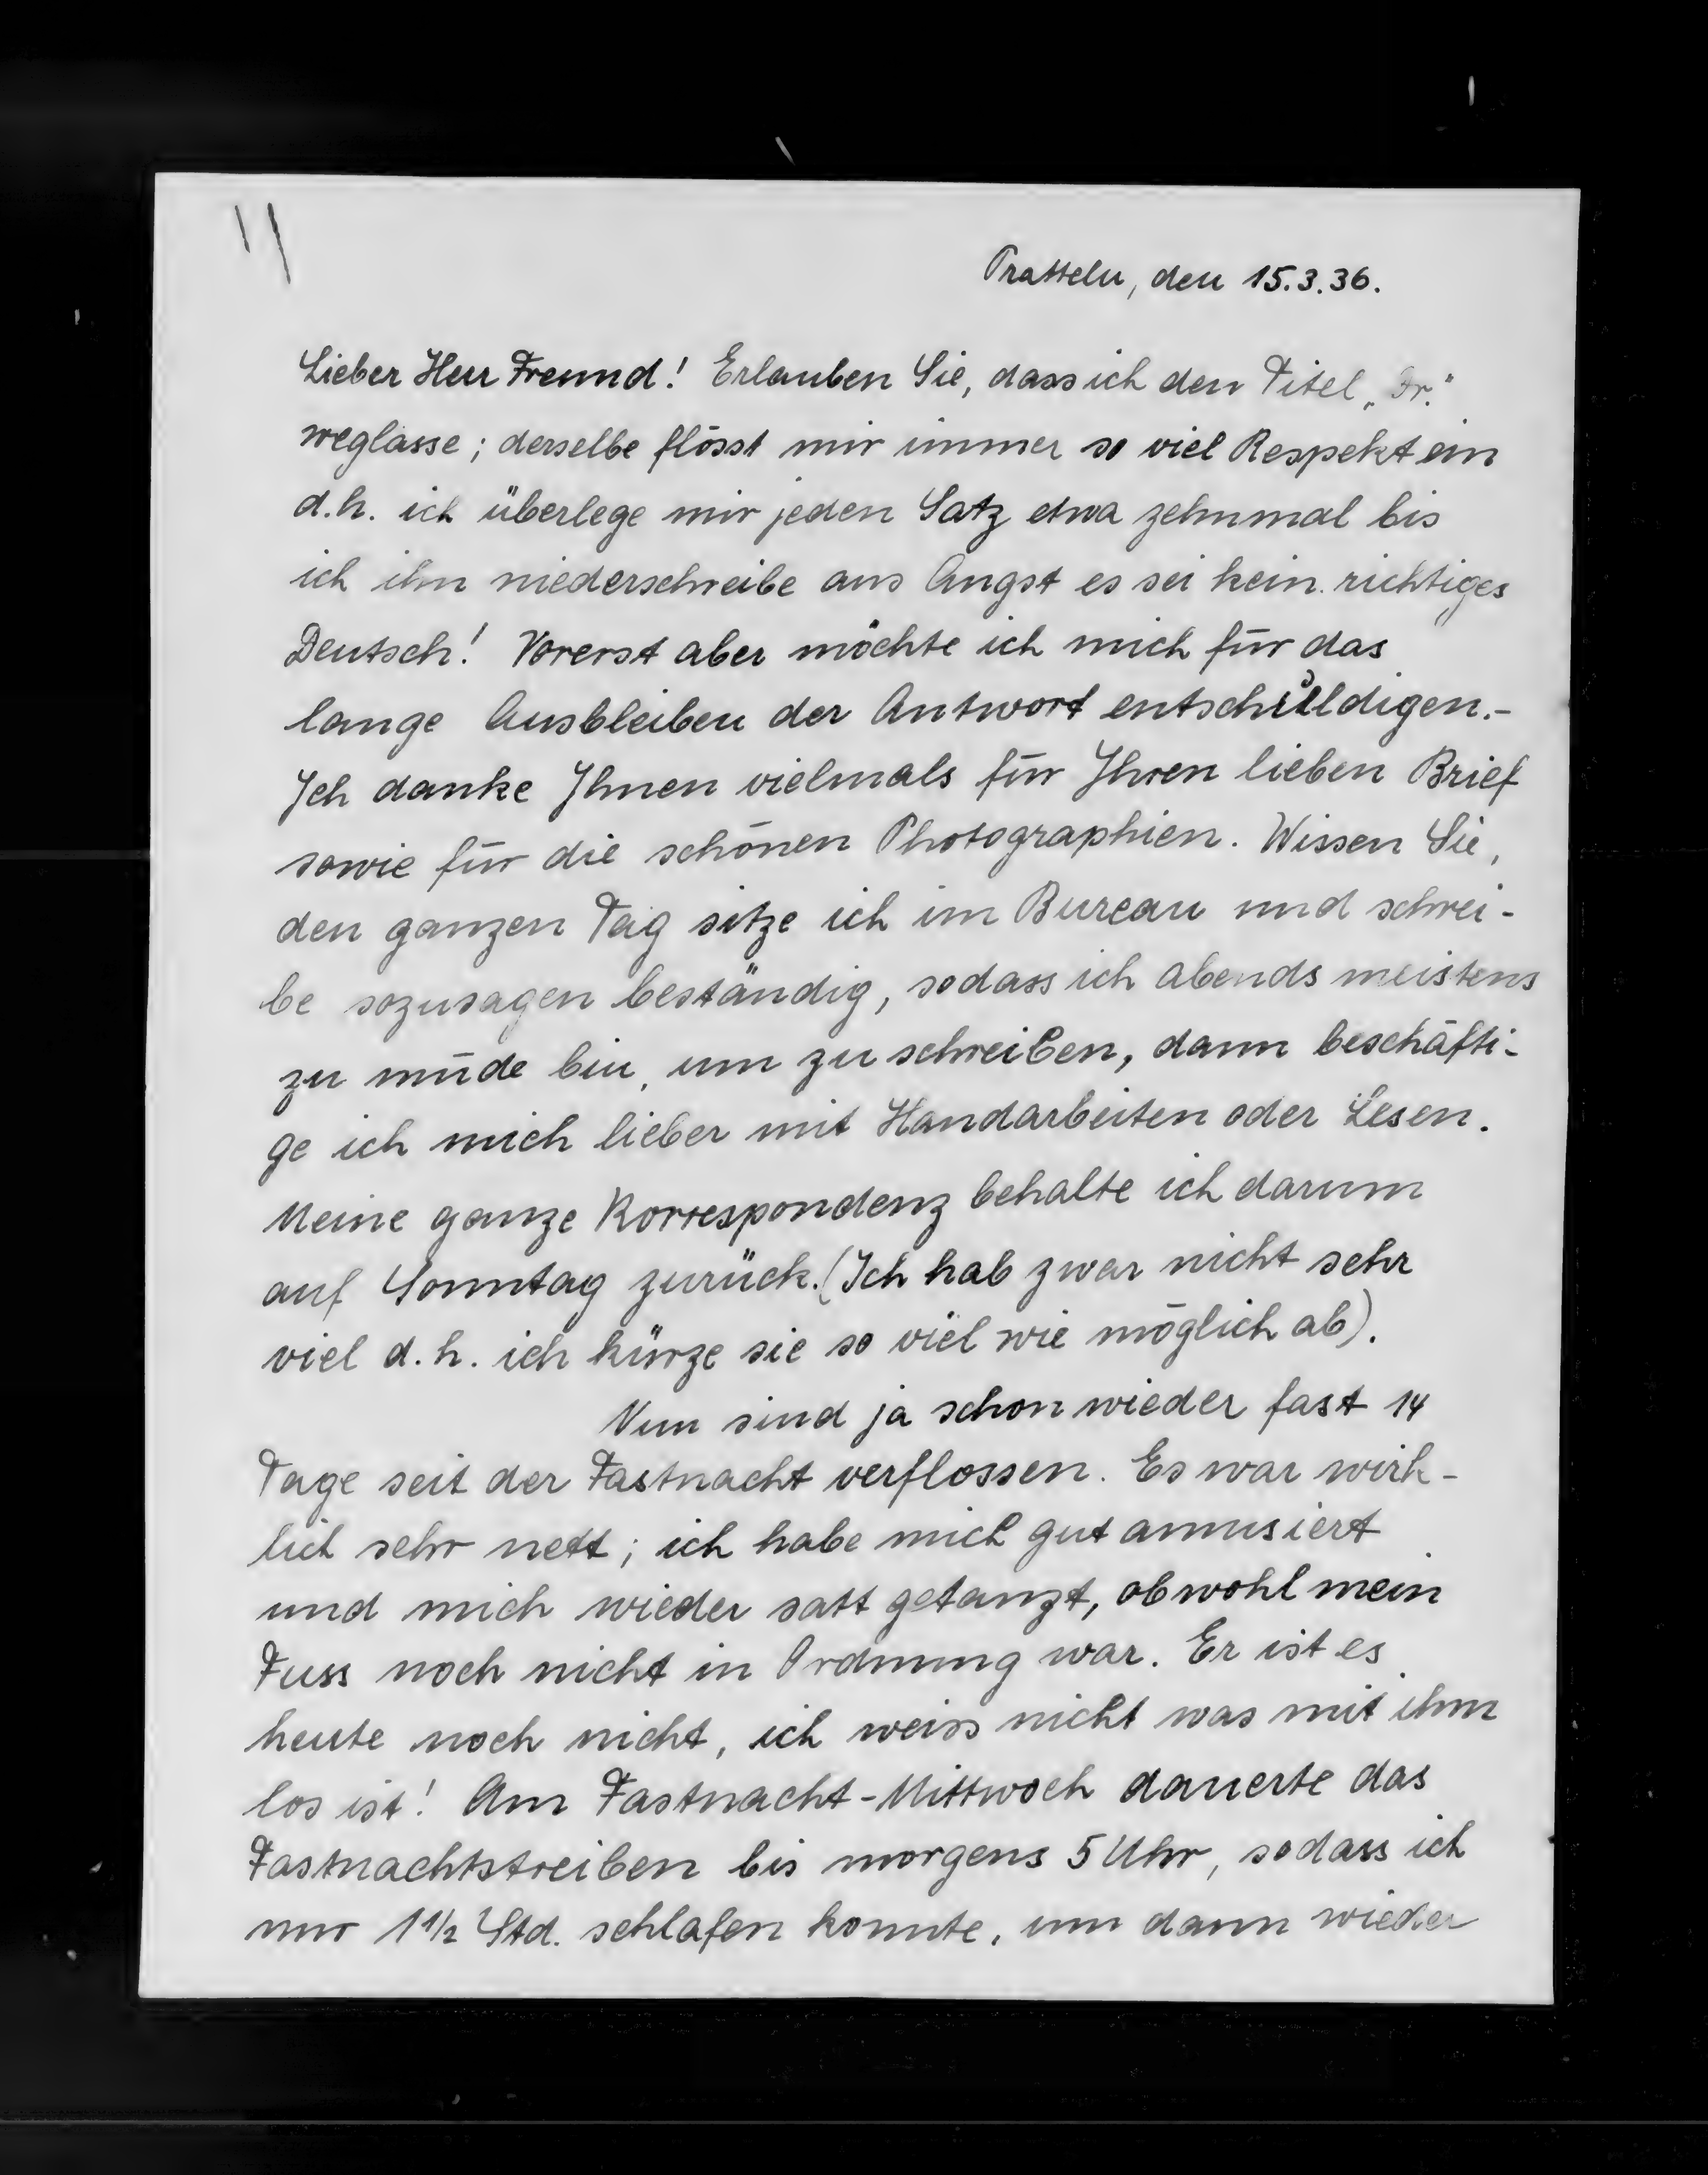 Pratteln, den 15.3.36.
Lieber Herr Freund! Erlauben Sie, dass ich den Titel „Dr."
weglasse; derselbe flösst mir immer so viel Respekt ein
d.h. ich überlege mir jeden Satz etwa zehnmal bis
ich ihn niederschreibe aus Angst es sei kein richtiges
Deutsch! Vorerst aber möchte ich mich für das
lange Ausbleiben der Antwort entschuldigen.-
Ich danke Ihnen vielmals für Ihren lieben Brief
sowie für die schönen Photographien. Wissen Sie,
den ganzen Tag sitze ich im Bureau und schrei-
be sozusagen beständig, sodass ich abends meistens
zu müde bin, um zu schreiben, dann beschäfti-
ge ich mich lieber mit Handarbeiten oder Lesen.
Meine ganze Korrespondenz behalte ich darum
auf Sonntag zurück. (Ich hab zwar nicht sehr
viel d.h. ich kürze sie so viel wie möglich ab).
Nun sind ja schon wieder fast 14
Tage seit der Fastnacht verflossen. Es war wirk-
lich sehr nett; ich habe mich gut amusiert
und mich wieder satt getanzt, obwohl mein
Fuss noch nicht in Ordnung war. Er ist es
heute noch nicht, ich weiss nicht was mit ihm
los ist! Am Fastnacht-Mittwoch dauerte das
Fastnachtstreiben bis morgens 5 Uhr, sodass ich
nur 1 1/2 Std. schlafen konnte, um dann wieder